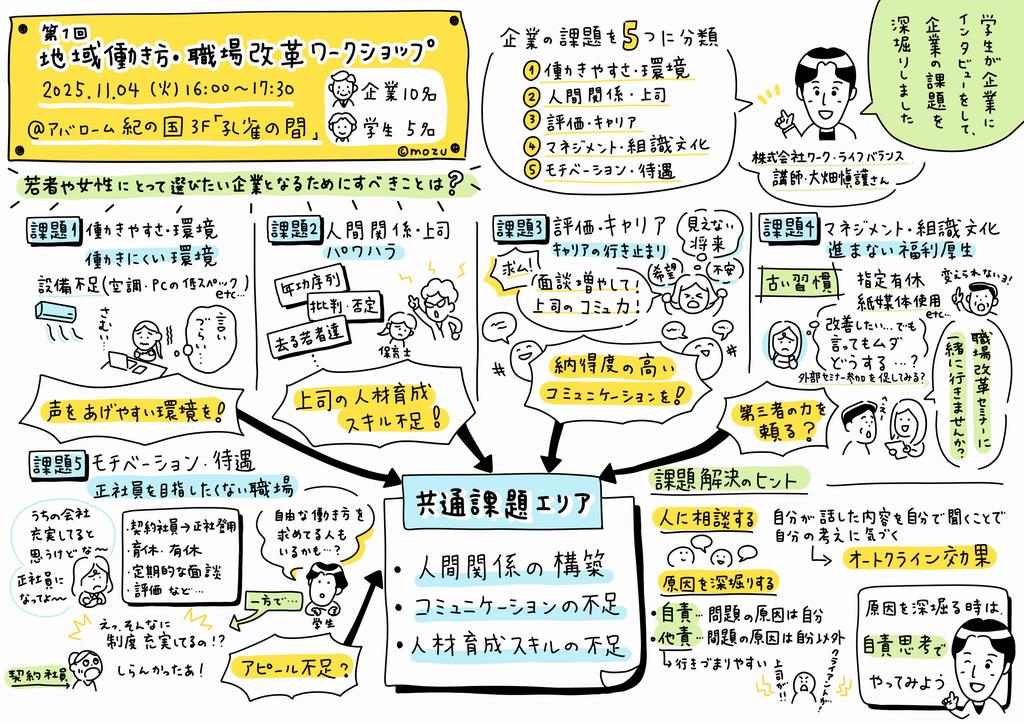 第1回
地域働き方・職場改革ワークショップ
2025.11.04 (火) 16:00〜17:30
@アバローム紀の国 3F「孔雀の間」
企業10名
学生 5名
©mozu
企業の課題を5つに分類
① 働きやすさ・環境
② 人間関係・上司
③ 評価・キャリア
④ マネジメント・組織文化
⑤ モチベーション・待遇
株式会社ワーク・ライフバランス
講師・大畑愼護さん
学生が企業に
インタビューをして、
企業の課題を
深堀りしました
若者や女性にとって選びたい企業となるためにすべきことは?
課題1 働きやすさ・環境
働きにくい環境
設備不足(空調・PCの低スペック)
etc…
さむい…
言い
づらい…
声をあげやすい環境を!
課題2 人間関係・上司
パワハラ
年功序列
批判・否定
去る若者達
保育士
上司の人材育成
スキル不足!
課題3 評価・キャリア
キャリアの行き止まり
求ム!
面談増やして!
上司のコミュ力!
見えない
将来
希望
不安
#
#
納得度の高い
コミュニケーションを!
課題4 マネジメント・組織文化
進まない福利厚生
古い習慣
指定有休
紙媒体使用
etc…
変えられないよ!
改善したい…でも
言ってもムダ
どうする…?
外部セミナー参加を促してみる?
第三者の力を
頼る?
え〜
職場改革セミナーに
一緒に行きませんか?
課題5 モチベーション・待遇
正社員を目指したくない職場
うちの会社
充実してると
思うけどな〜
正社員に
なってよ〜
・契約社員→正社登用
・育休・有休
・定期的な面談
・評価 など…
自由な働き方を
求めてる人も
いるかも…?
学生
一方で…
えっ、そんなに
制度充実してるの!?
契約社員
しらんかったあ!
アピール不足?
共通課題エリア
・人間関係の構築
・コミュニケーションの不足
・人材育成スキルの不足
課題解決のヒント
人に相談する
自分が話した内容を自分で聞くことで
自分の考えに気づく
オートクライン効果
原因を深堀りする
・自責…問題の原因は自分
・他責…問題の原因は自分以外
行きづまりやすい
上司が!!
クライアントが!
原因を深堀る時は、
自責思考で
やってみよう